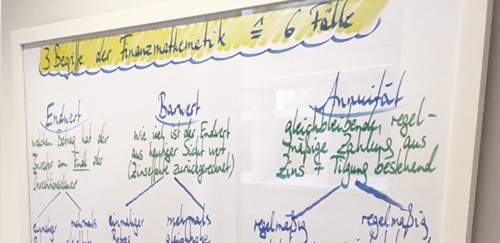 3 Begriffe der Finanzmathematik ≙ 6 Fälle
Endwert
Barwert
Annuität
welchen Betrag hat der
Investor am Ende der
wie viel ist der Endwert
aus heutiger Sicht wert
(Zinseffekte zurückgerechnet)
gleichbleibende, regel-
mäßige Zahlung aus
Zins + Tilgung bestehend
einmaliger
mehrmals
einmaliger
Betrag
mehrmals
gleichhohe
regelmäßig
regelmäßig